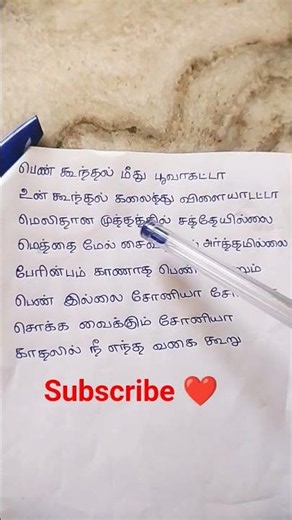 பெண் கூந்தல் மீது பூவாகட்டா
உன் கூந்தல் கலைத்து விளையாடட்டா
மெலிதான முத்தத்தில் சத்தேயில்லை
மெத்தை மேல் சைவ அர்த்தமில்லை
பேரின்பம் காணாத பெண்
பெண் இல்லை சோனியா
சொக்க வைக்கும் சோனியா
காதலில் நீ எந்த வகை கூறு
Subscribe ❤️